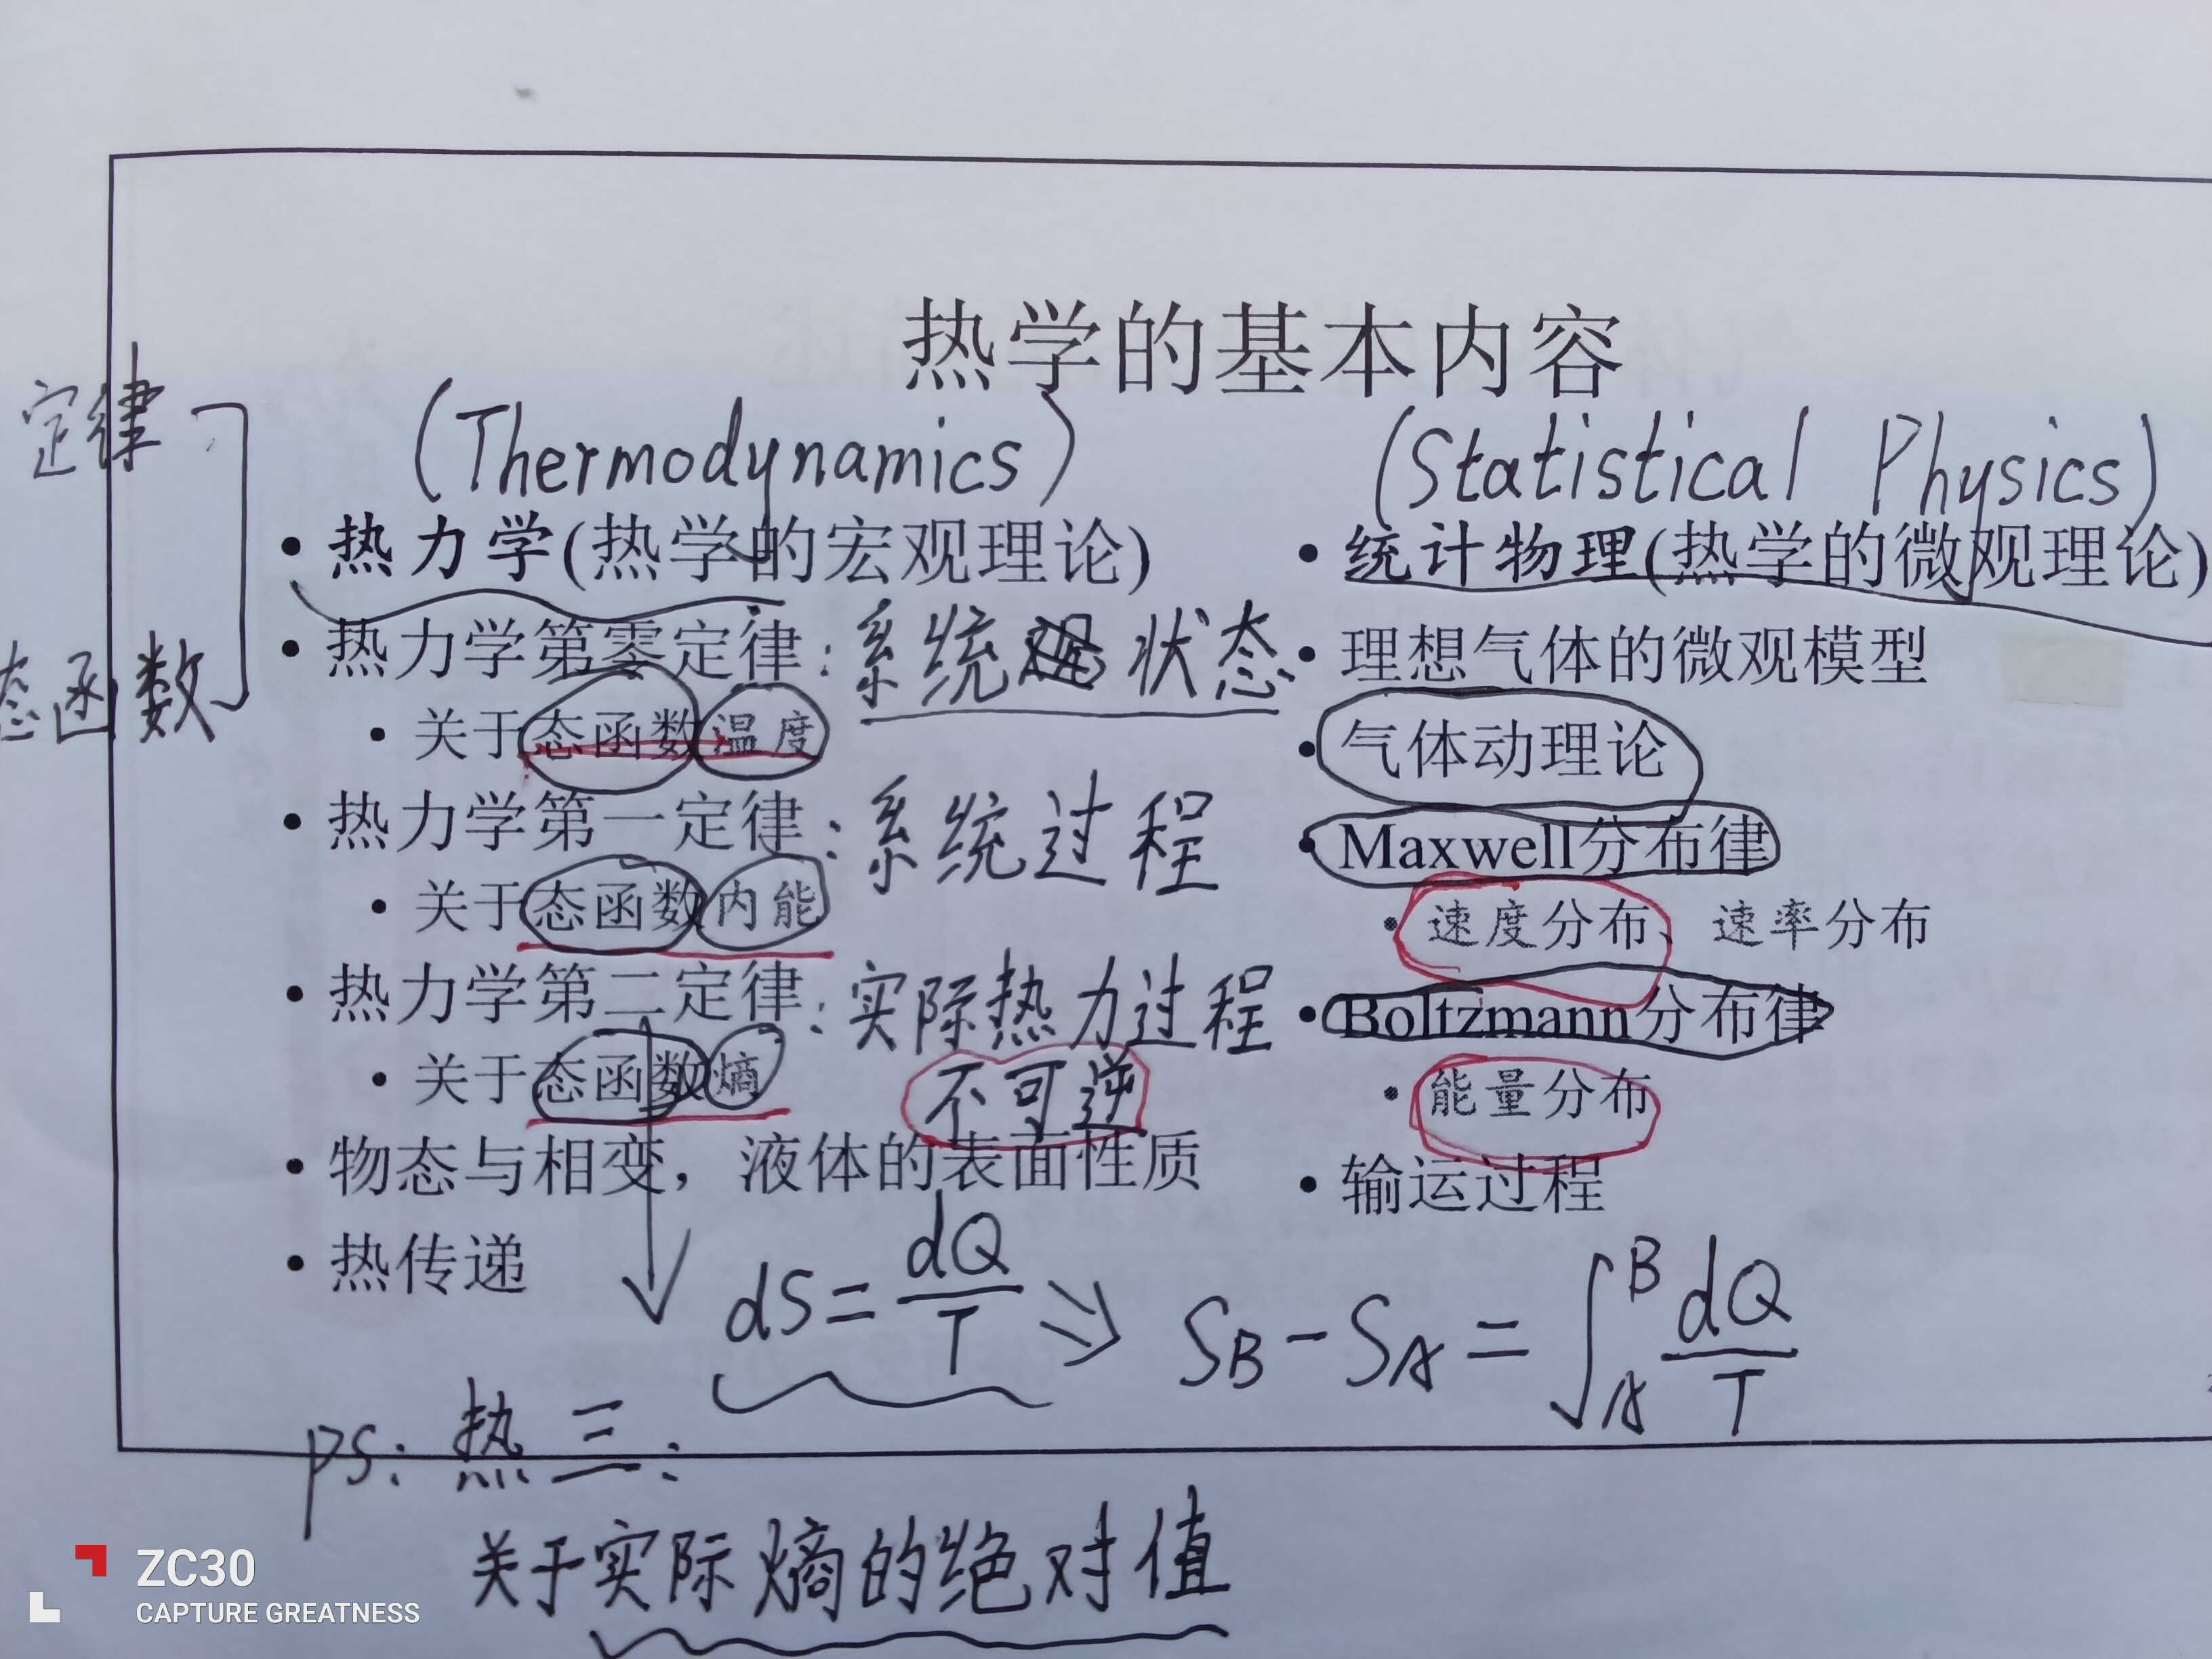 热学的基本内容
定律
态函数
(Thermodynamics)
• 热力学(热学的宏观理论)
• 热力学第零定律：系统状态
• 关于态函数温度
• 热力学第一定律：系统过程
• 关于态函数内能
• 热力学第二定律：实际热力过程
不可逆
• 关于态函数熵
• 物态与相变，液体的表面性质
• 热传递
(Statistical Physics)
• 统计物理(热学的微观理论)
• 理想气体的微观模型
• 气体动理论
• Maxwell分布律
• 速度分布、速率分布
• Boltzmann分布律
• 能量分布
• 输运过程
dS = dQ/T ⇒ S_B - S_A = ∫_A^B dQ/T
ps: 热三:
关于实际熵的绝对值
ZC30
CAPTURE GREATNESS